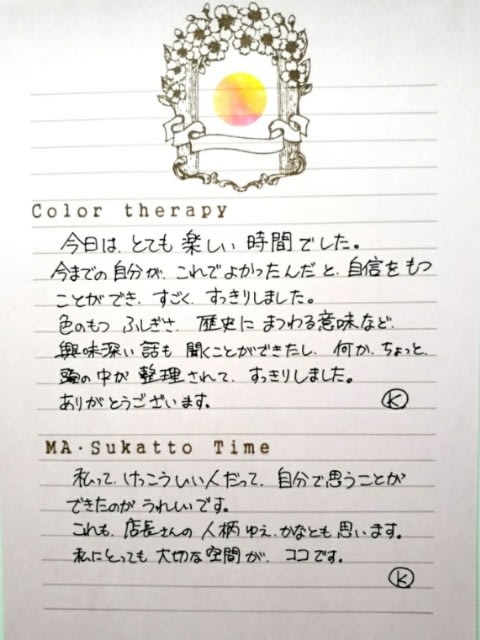 Color therapy
今日は、とても楽しい時間でした。
今までの自分が、これでよかったんだと、自信をもつ
ことができ、すごく、すっきりしました。
色のもつ ふしぎさ、歴史にまつわる意味など、
興味深い話も聞くことができたし、何か、ちょっと、
頭の中が整理されて、すっきりしました。
ありがとうございます。 Ⓚ
MA・Sukatto Time
私って、けっこういい人だって、自分で思うことが
できたのが うれしいです。
これも、店長さんの人柄ゆえ、かなとも思います。
私にとっても大切な空間が、ココです。
Ⓚ